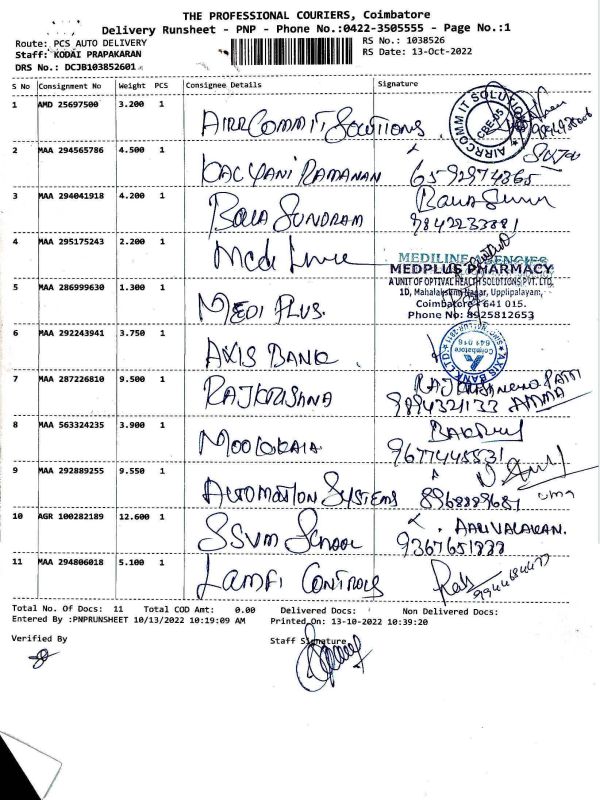 THE PROFESSIONAL COURIERS, Coimbatore
Delivery Runsheet - PNP - Phone No.:0422-3505555 - Page No.:1
Route: PCS AUTO DELIVERY
RS No.: 1038526
Staff: KODAI PRAPAKARAN
RS Date: 13-Oct-2022
DRS No.: DCJB103852601
S No Consignment No Weight PCS Consignee Details Signature
1 AMD 25697500 3.200 1
AIRRCOMMIT SOLUTIONS
AIRRCOMM IT SOLUTIONS
CBE-05
2 MAA 294565786 4.500 1
KALYANI RAMANAN 6592974365
3 MAA 294041918 4.200 1
BALA SUNDRAM 9842233881
4 MAA 295175243 2.200 1
Medi Line
MEDILINE AGENCIES
5 MAA 286999630 1.300 1
MEDI PLUS.
MEDPLUS PHARMACY
A UNIT OF OPTIVAL HEALTH SOLUTIONS PVT. LTD.
1D, Mahalakshmi Nagar, Upplipalayam,
Coimbatore - 641 015.
Phone No: 8925812653
6 MAA 292243941 3.750 1
AXIS BANK
AXIS BANK LTD.
Coimbatore
641 018
7 MAA 287226810 9.500 1
RAJKRISHNA 9894321133 AMMA
8 MAA 563324235 3.900 1
9677448531
9 MAA 292889255 9.550 1
AUTOMATION SYSTEMS 8968889681
uma
10 AGR 100282189 12.600 1
SSVM School 9367651888
AARIVALAKAN.
11 MAA 294806018 5.100 1
LAMFI CONTROLS
9944684477
Total No. Of Docs: 11 Total COD Amt: 0.00 Delivered Docs: Non Delivered Docs:
Entered By :PNPRUNSHEET 10/13/2022 10:19:09 AM Printed On: 13-10-2022 10:39:20
Verified By
Staff Signature